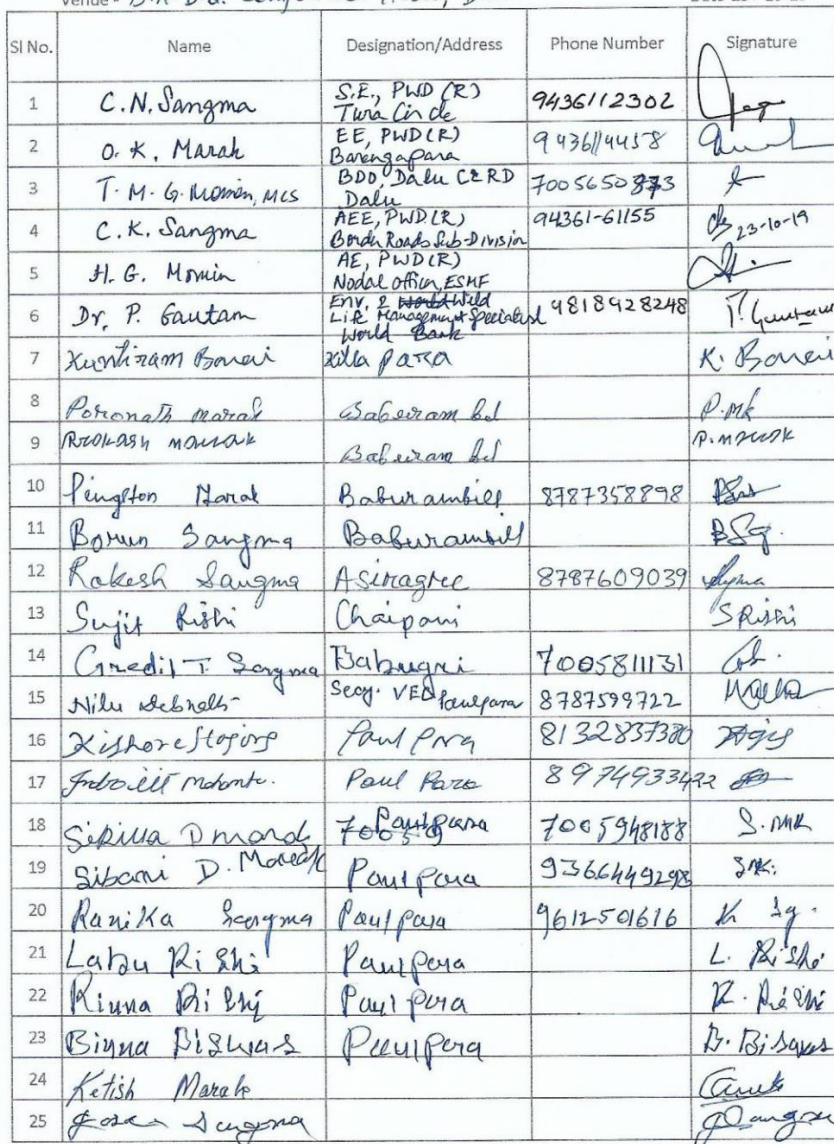 Venue -
Sl No. Name Designation/Address Phone Number Signature
1 C.N. Sangma S.E., PWD (R) Tura Circle 9436112302
2 O. K. Marak EE, PWD (R) Barengapara 9436114458
3 T. M. G. Momin, MCS BDO, Dalu C&RD Dalu 7005650
4 C. K. Sangma AEE, PWD (R) Border Roads Sub-Division 94361-61155 23-10-19
5 H. G. Momin AE, PWD (R) Nodal Officer, ESMF
6 Dr. P. Gautam Env. & Wild Life Management Specialist World Bank 9818928248 P. Gautam
7 Killa para K. Bonai
8 Marak P. Mk
9 Prokash P. Marak
10 Pingston Marak Baburambill 8787358898
11 Borun Sangma Baburambill B Sg.
12 Rakesh Sangma Asiragree 8787609039
13 Sujit Rishi Chaipani S Rishi
14 Credil T. Sangma Babugri 7005811131
15 Nilu Debnath Secy. VEC Paulpara 8787599722
16 Kishore 8132837380
17 Paul Para 8974933422
18 D Paulpara 7005948188 S. MK
19 Sibani D. Marak Paulpara 9366449298 SMK.
20 Ranika Sangma Paulpara 9612501616 Sg.
21 Labu Rishi Paulpara L. Rishi
22 Rinna Rishi Paulpara R. Rishi
23 Binna Biswas Paulpara B. Biswas
24 Ketish Marak
25 Sangma